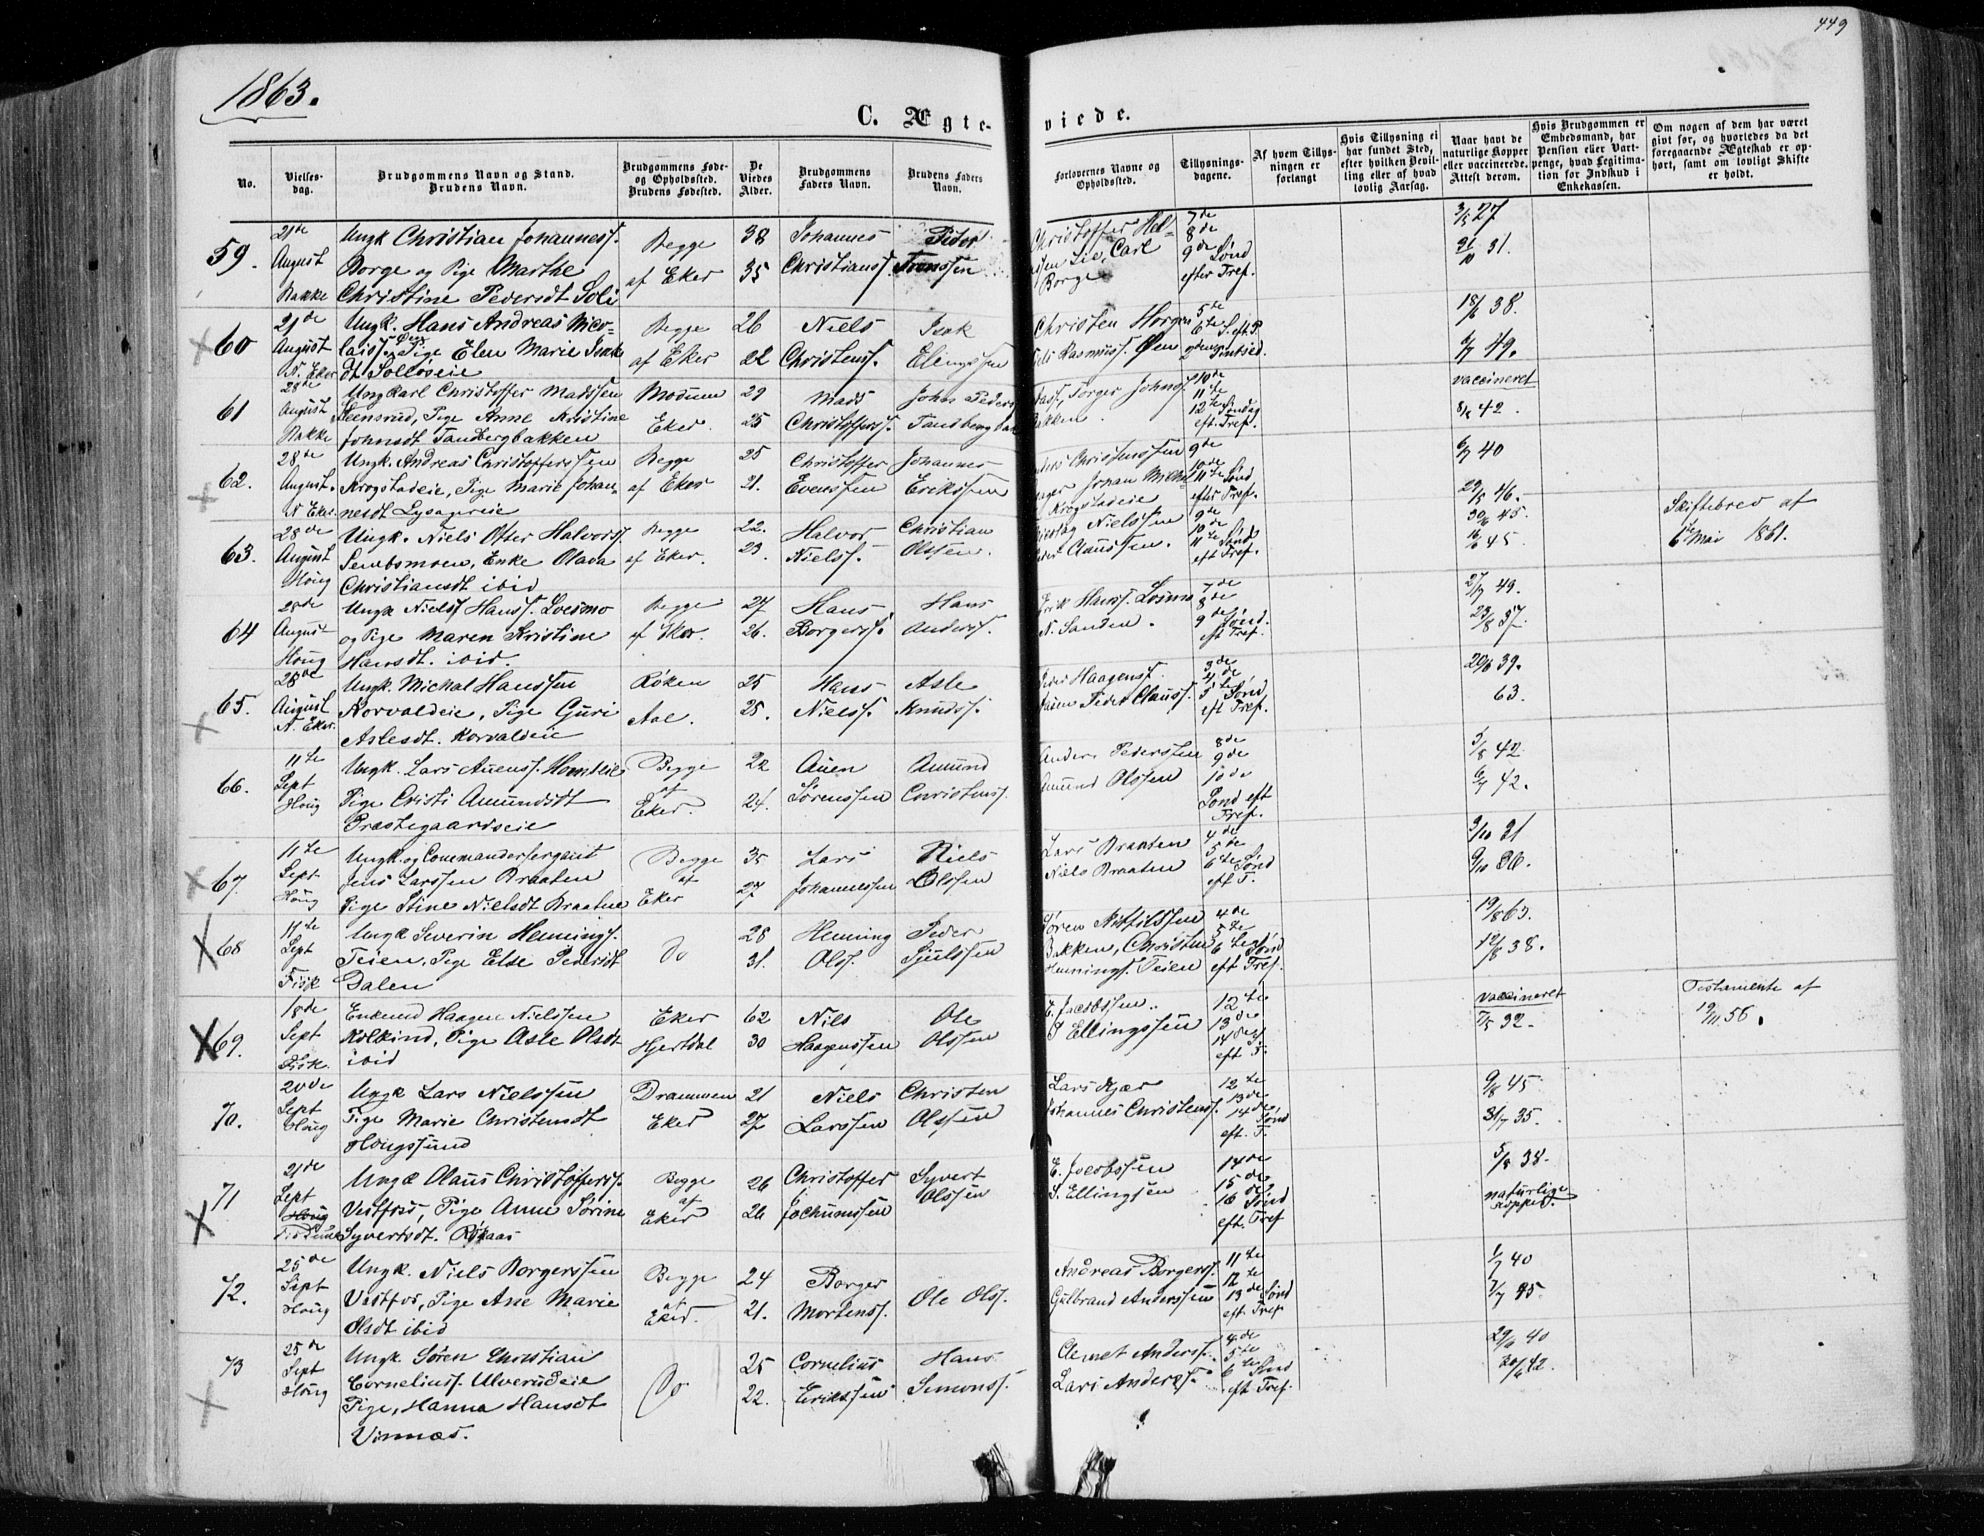 449
1863.
C. Ægte-
viede.
No.
Vielses-
dag.
Brudgommens Navn og Stand.
Brudens Navn.
Brudgommens Føde-
og Opholdssted.
Brudens Fødested.
De
Viedes
Alder.
Brudgommens
Faders Navn.
Brudens Faders
Navn.
Forlovernes Navne og
Opholdssted.
Tillysnings-
dagene.
Af hvem Tillys-
ningen er
forlangt
Hvis Tillysning ei
har fundet Sted,
efter hvilken Bevil-
ling eller af hvad
lovlig Aarsag.
Naar havt de
naturlige Kopper
eller vaccinerede.
Attest derom.
Hvis Brudgommen er
Embedsmand, har
Pension eller Vart-
penge, hvad Legitima-
tion for Indskud i
Enkekassen.
Om nogen af dem har været
gift før, og hvorledes da det
foregaaende Ægteskab er op-
hørt, samt om lovligt Skifte
er holdt.
59.
21de
August
Bakke
Ungk Christian Johanness.
Borge og Pige Marthe
Christine Pedersdt Soli
Begge
af Eker
38
35
Johannes
Christianss.
Peder
Christoffer Hel-
Lie, Carl
Borge
7de
8de
9de Sønd
efter Tref.
3/5 27
31.
60
21de
August
N. Eker
Ungk. Hans Andreas Nico-
laiss. og Pige Elen Marie Isak
dt Solloseie
Begge
af Eker
26
22
Niels
Christenss.
Isak
Elingssen
Christen Horgen
Rasmuss. Øen
5te
6te S. eft T.
18/6 38.
6/7 49.
61
28de
August
Bakke
Ungkarl Christoffer Madssen
Steensrud, Pige Anne Kristine
Johnsdt Tandbergbakken
Modum
Eker.
29
25
Mads
Christoffers.
John Peders
Tandberg bak
Torger Johns.
Bakken.
10de
11te
12te Søndag
eft. Tref.
vaccineret
8/8 42.
62.
28de
August.
N Eker
Ungk. Andreas Christofferssen
Krogstadeie, Pige Marie Johan-
nesdt Lysagereie
Begge
af Eker
25
21.
Christoffer
Evenssen
Johannes
Erikssen
Anders Christenssen
Johan Michel
Krogstadeie
9de
10de
11te Sønd
efter Tref.
6/7 40
29/8 46.
63.
28de
August
Houg
Ungk. Niels Otter Halvors.
Sembsmoen, Enke Olava
Christiansdt ibid
Begge
af Eker.
22.
23.
Halvor
Nielss.
Christian
Olssen.
Nielssen
Claussen.
9de
10de
11te Sønd
eft Tref.
30/6 45.
16/6 45.
Skiftebrev af
6te Mai 1861.
64
28de
August
Houg
Ungk Niels Hanss. Loesmo
og Pige Maren Kristine
Hansdt. ibid.
Begge
af Eker.
27
26.
Hans
Borgerss.
Hans
Anderss.
Erik Hanss. Loesmo
N. Sanden.
7de
8de
9de Sønd.
eft Tref.
27/7 49.
23/8 37.
65.
28de
August
N. Eker.
Ungk. Michal Hanssen
Horvaldeie, Pige Guri
Aslesdt. Horvaldeie
Røken
Aal.
25
25.
Hans
Nielss.
Asle
Knudss.
Peder Haagenss.
Peder Clauss.
3de
4de
5te Sønd
eft Tref.
20/6 39.
63.
66.
11te
Sept
Houg
Ungk. Lars Auenss. Homleie
Pige Cristi Amundsdt
Præstegaardseie
Begge
af
Eker.
22
24.
Auen
Sørenssen
Amund
Christenss.
Anders Pederssen
Amund Olssen
8de
9de
10de
Sønd eft
Tref.
3/8 42
6/7 42.
67.
11te
Sept
Houg
Ungk. og Commandersergeant
Jens Larssen Braaten
Pige Stine Nielsdt Braaten
Begge
af
Eker
35
27
Lars
Johannessen
Niels
Olssen
Lars Braaten
Niels Braaten
4de
5de
6te Sønd
eft T.
3/10 31
9/10 36.
68
11te
Sept
Fisk
Ungk Severin Hennings.
Teien, Pige Else Pedersdt
Dalen
Do
28
31.
Henning
Ols.
Peder
Sjulssen
Søren
Bakken, Christen
Hennings. Teien
4de
5te
6te Sønd
eft Tref.
19/8 63.
12/8 38.
69.
18de
Sept
Fisk.
Enkemd Haagen Nielssen
Kolkind, Pige Asle Olsdt
ibid
Eker
Hjertdal
62
30
Nils
Haagenssen
Ole
Olssen
E. Jacobssen
S Ellingssen
12te
13de
14de S.
eft T.
vaccineret
7/5 32.
Testamente af
19/11 56.
70.
20de
Sept
Houg
Ungk Lars Nielssen
Pige Marie Christensdt
Hougssund
Drammen
Eker
21
27
Niels
Larssen
Christen
Olssen
Lars Kjær
Johannes Christenss.
12te
13de
14de Sønd
eft. T.
9/8 45
31/7 35.
71
21de
Sept
Houg
Ungk Olaus Christoffers.
Vestfos, Pige Anne Sørine
Syvertsdt. Røkaas
Begge
af
Eker
26
26
Christoffer
Jochumssen
Syvert
Olssen
E. Jacobssen
S. Ellingsen
14de
15de
16de Sønd
eft. Tref
5/8 38.
naturlige
Kopper.
72.
25de
Sept
Houg
Ungk. Niels Borgerssen
Vestfos, Pige Ane Marie
Olsdt ibid
Begge
af
Eker.
24
21.
Borger
Mortenss.
Ole Olss.
Andreas Borgerss.
Gulbrand Anderssen
11te
12te
13de Sønd
eft Tref
1/7 40
7/7 45.
73
25de
Sept
Houg
Ungk Søren Christian
Corneliuss. Ulverudeie
Pige, Hanna Hansdt
Vinnæs.
Do
25
22.
Cornelius
Erikssen
Hans
Simonss.
Clemet Anderss.
Lars Anderss.
4de
5te
6te Sønd
eft Tref.
40
42.